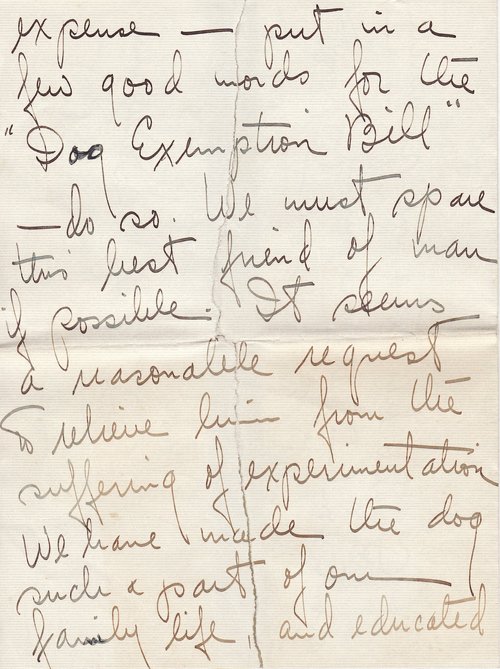 expense — put in a
few good words for the
"Dog Exemption Bill"
— do so. We must spare
this best friend of man
if possible. It seems
a reasonable request
to relieve him from the
suffering of experimentation
We have made the dog
such a part of our
family life, and educated